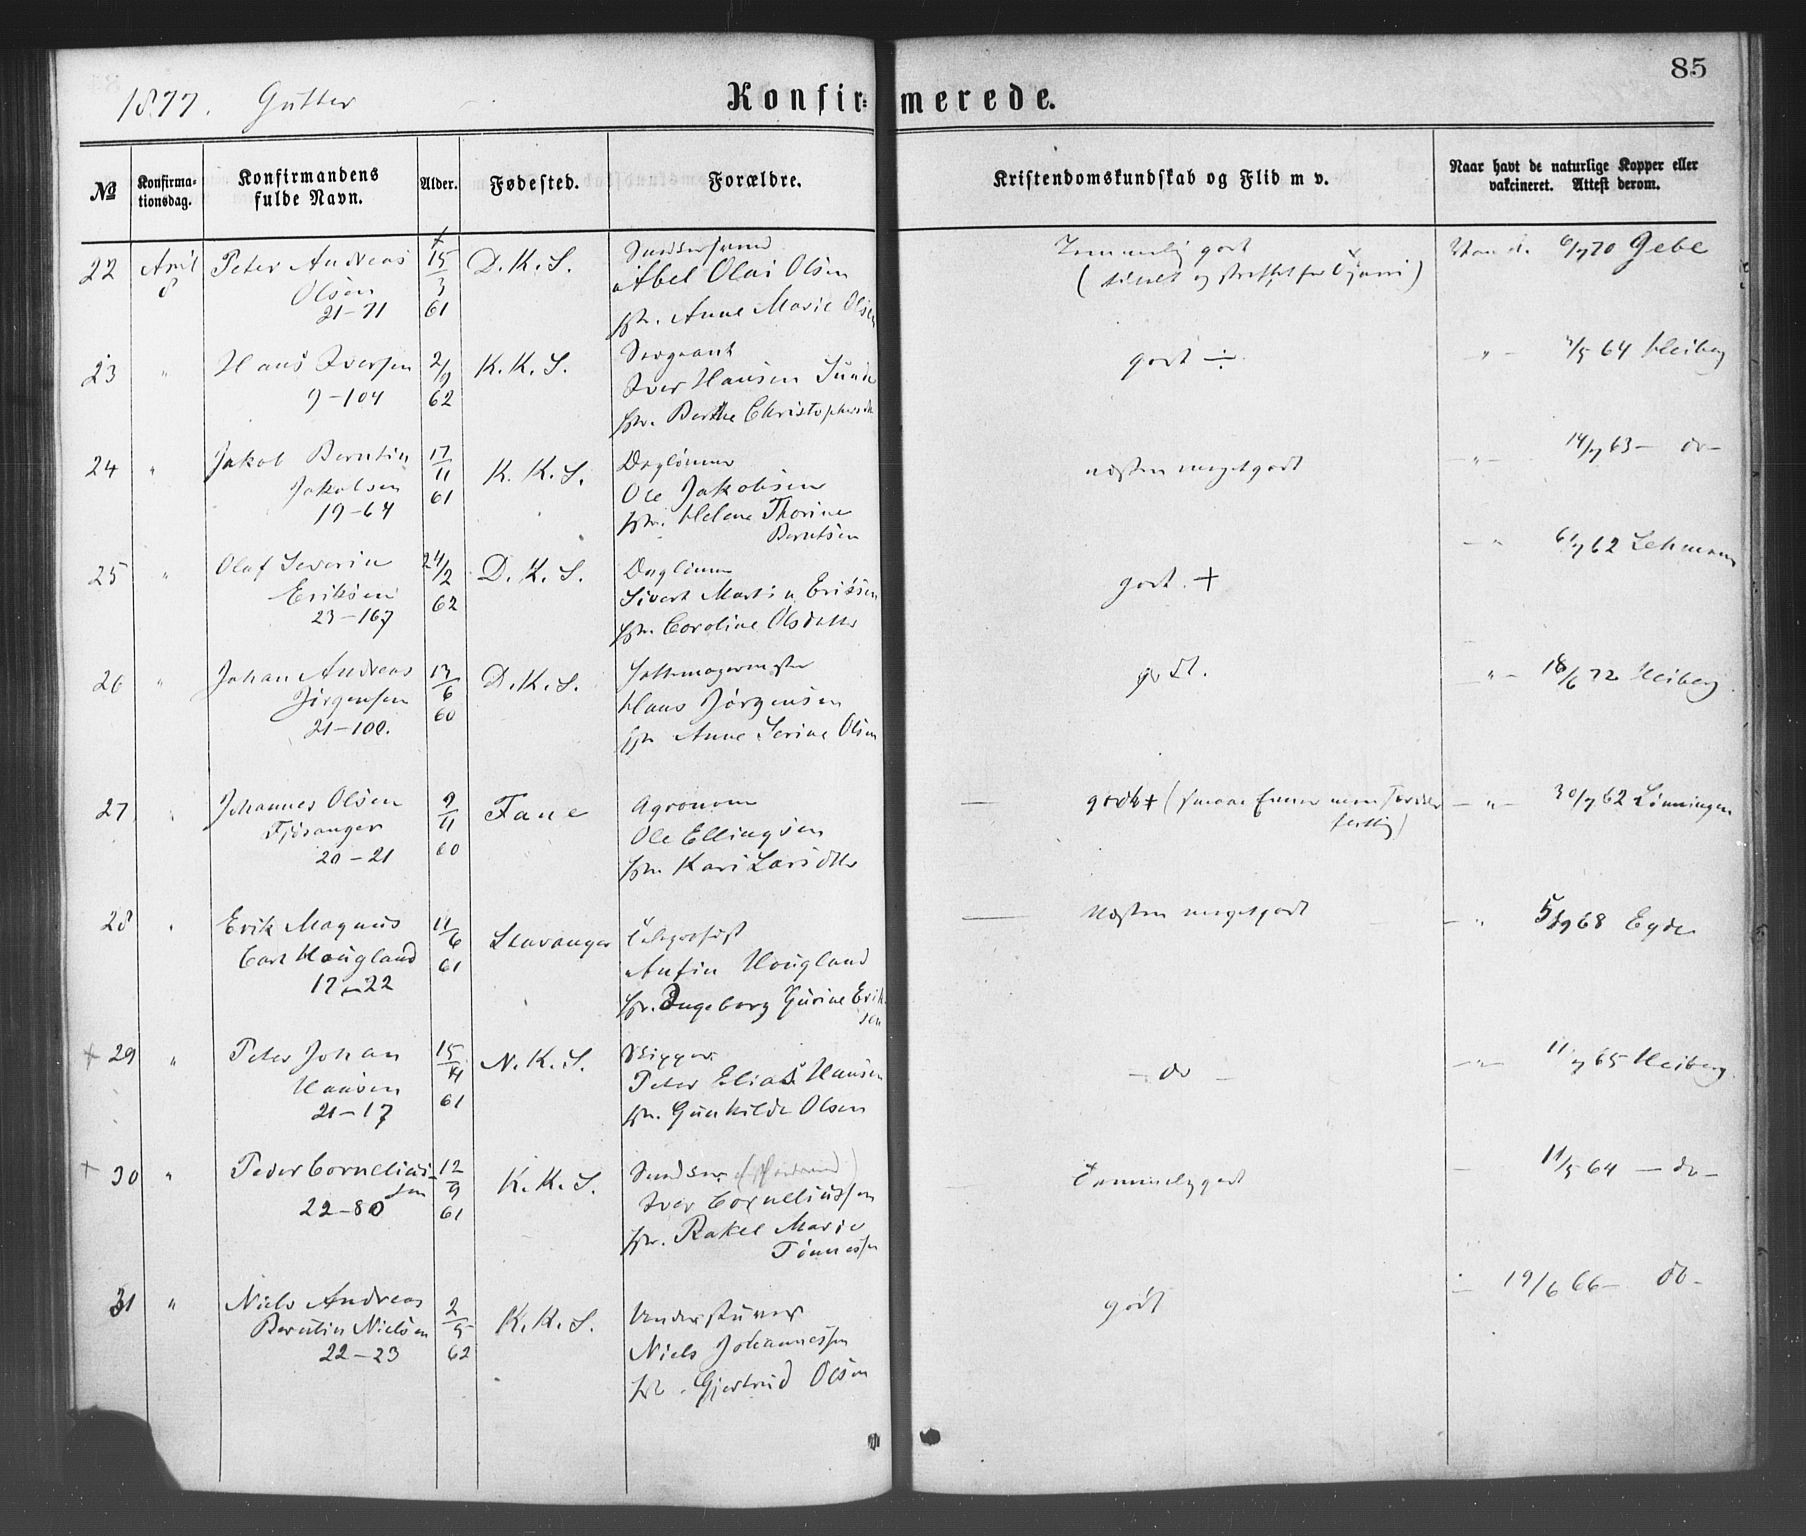 85
1877. Gutter
Konfirmerede.
№
Konfirmationsdag.
Konfirmandens fulde Navn.
Alder.
Fødested.
Forældre.
Kristendomskundskab og Flid m v.
Naar havt de naturlige Kopper eller vakcineret. Attest derom.
22 April 8 Peter Andreas Olsen 21-71
15/3 61
D. K. S.
Abel Olai Olsen
Anne Marie Olsen
Temmelig godt
6/7 70 Gebe
23 " Hans Iversen 9-104
2/9 62
K. K. S.
Sergeant
Iver Hansen Sunde
Berthe Christophersdt
godt ÷
64 Heiberg
24 " Jakob Berntin Jakobsen 19-64
17/11 61
K. K. S.
Daglønner
Ole Jakobsen
Helene Thorine Berntsen
næsten meget godt
14/7 63 - do -
25 " Olaf Severin Eriksen 23-167
24/2 62
D. K. S.
Daglønner
Sivert Martin Eriksen
Caroline Olsdatter
godt. +
62 Lehmann
26 " Johan Andreas Jørgensen 21-100.
13/6 60
D. K. S.
Hans Jørgensen
Anne Serine Olsen
godt.
18/6 72 Heiberg
27 " Johannes Olsen Fjøsanger 20-21
9/11 60
Fane
Agronom
Ole Ellingsen
Kari Larsdtr
godt +
30/7 62 Lønningen
28 " Erik Magnus Carl Hougland 17-22
11/6 61
Stavanger
Telegrafist
Anfin Hougland
Ingeborg Gurine Eriksen
Næsten meget godt
68 Egde
+ 29 " Peter Johan Hansen 21-17
15/11 61
N. K. S.
Peter Elias Hansen
Gunhilde Olsen
- do -
11/7 65 Heiberg
+ 30 " Peder Corneliussen 22-80
12/9 61
K. K. S.
Iver Corneliussen
Rakel Marie Tønnessen
Temmelig godt
11/5 64 - do -
31 " Niels Andreas Berntin Nielsen 22-23
2/5 62
K. K. S.
Niels Johannessen
Gjertrud Olsen
godt
19/6 66 - do -